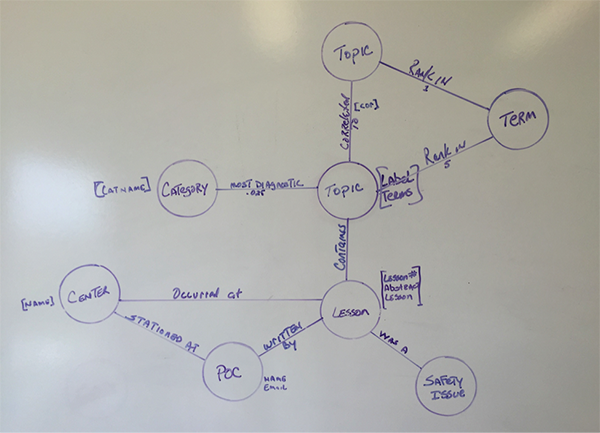 TOPIC
RANK IN
1
TERM
CORRELATED
TO
[COR]
RANK IN
5
[CATNAME]
CATEGORY
MOST DIAGNOSTIC
TOPIC
[LABEL
TERMS]
CONTAINS
[NAME]
CENTER
OCCURRED AT
LESSON
[LESSON #
Abstract
LESSON]
STATIONED AT
WRITTEN
BY
WAS A
POC
NAME
EMAIL
SAFETY
ISSUE